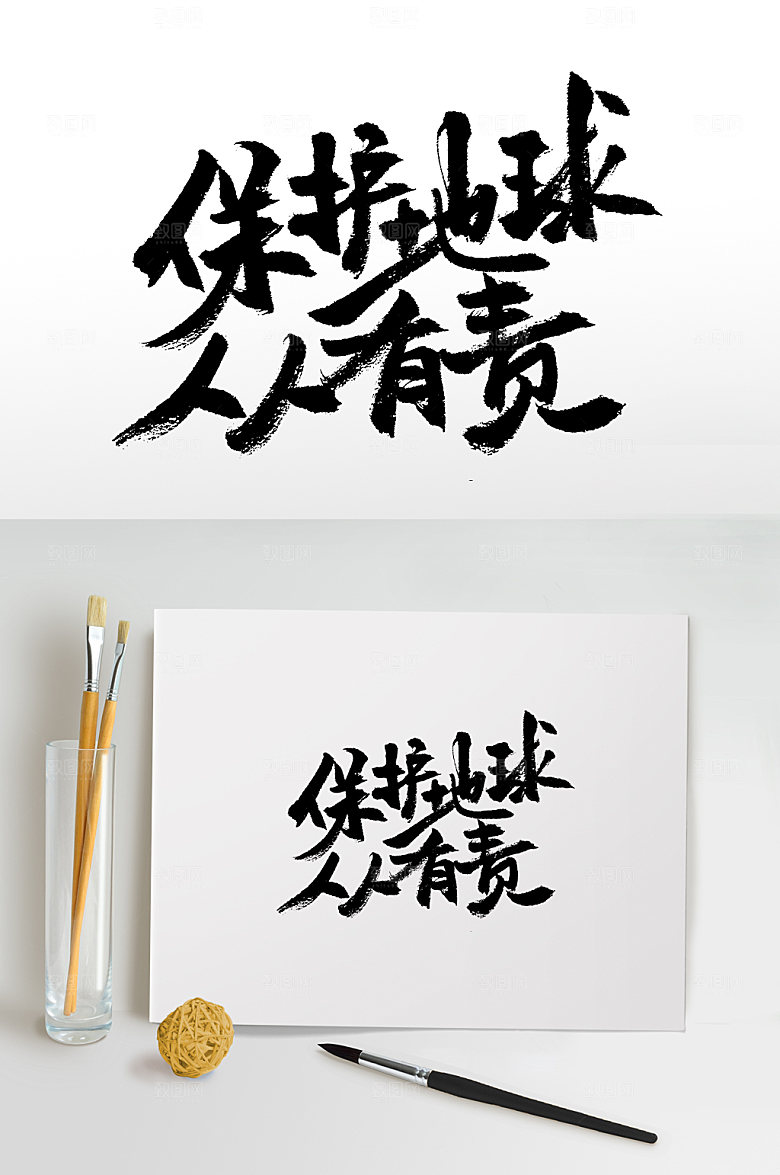 保护地球
人人有责
保护地球
人人有责